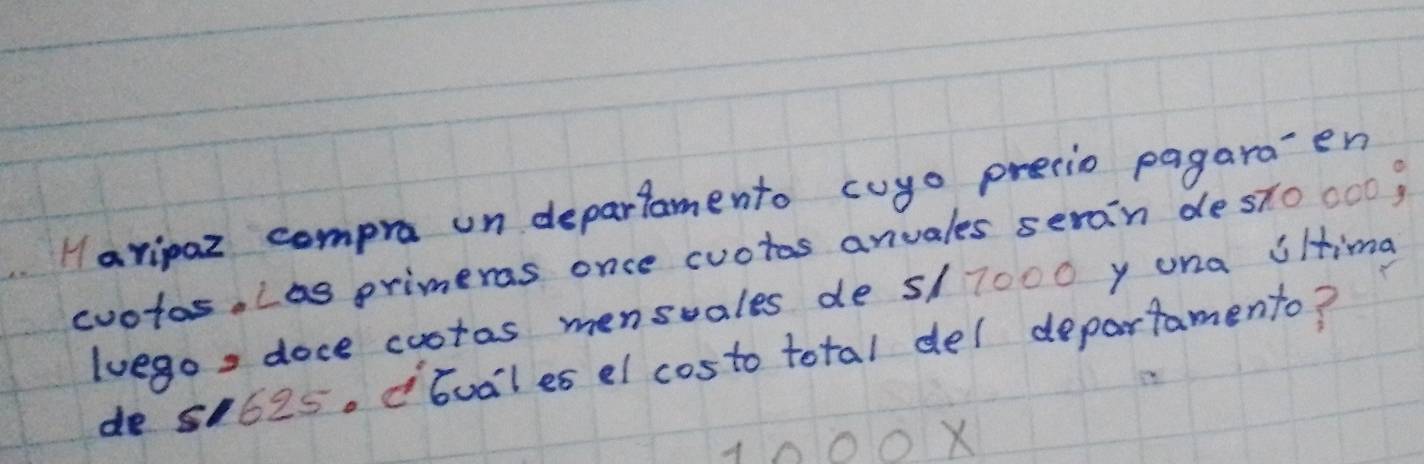 Maripaz compra un departamento cuyo precio pagará en
cuotas. Las primeras once cuotas anuales serán de s/10 000;
luego, doce cuotas mensuales de s/ 7000 y una última
de s/ 625. ¿Cuál es el costo total del departamento?
1000 X